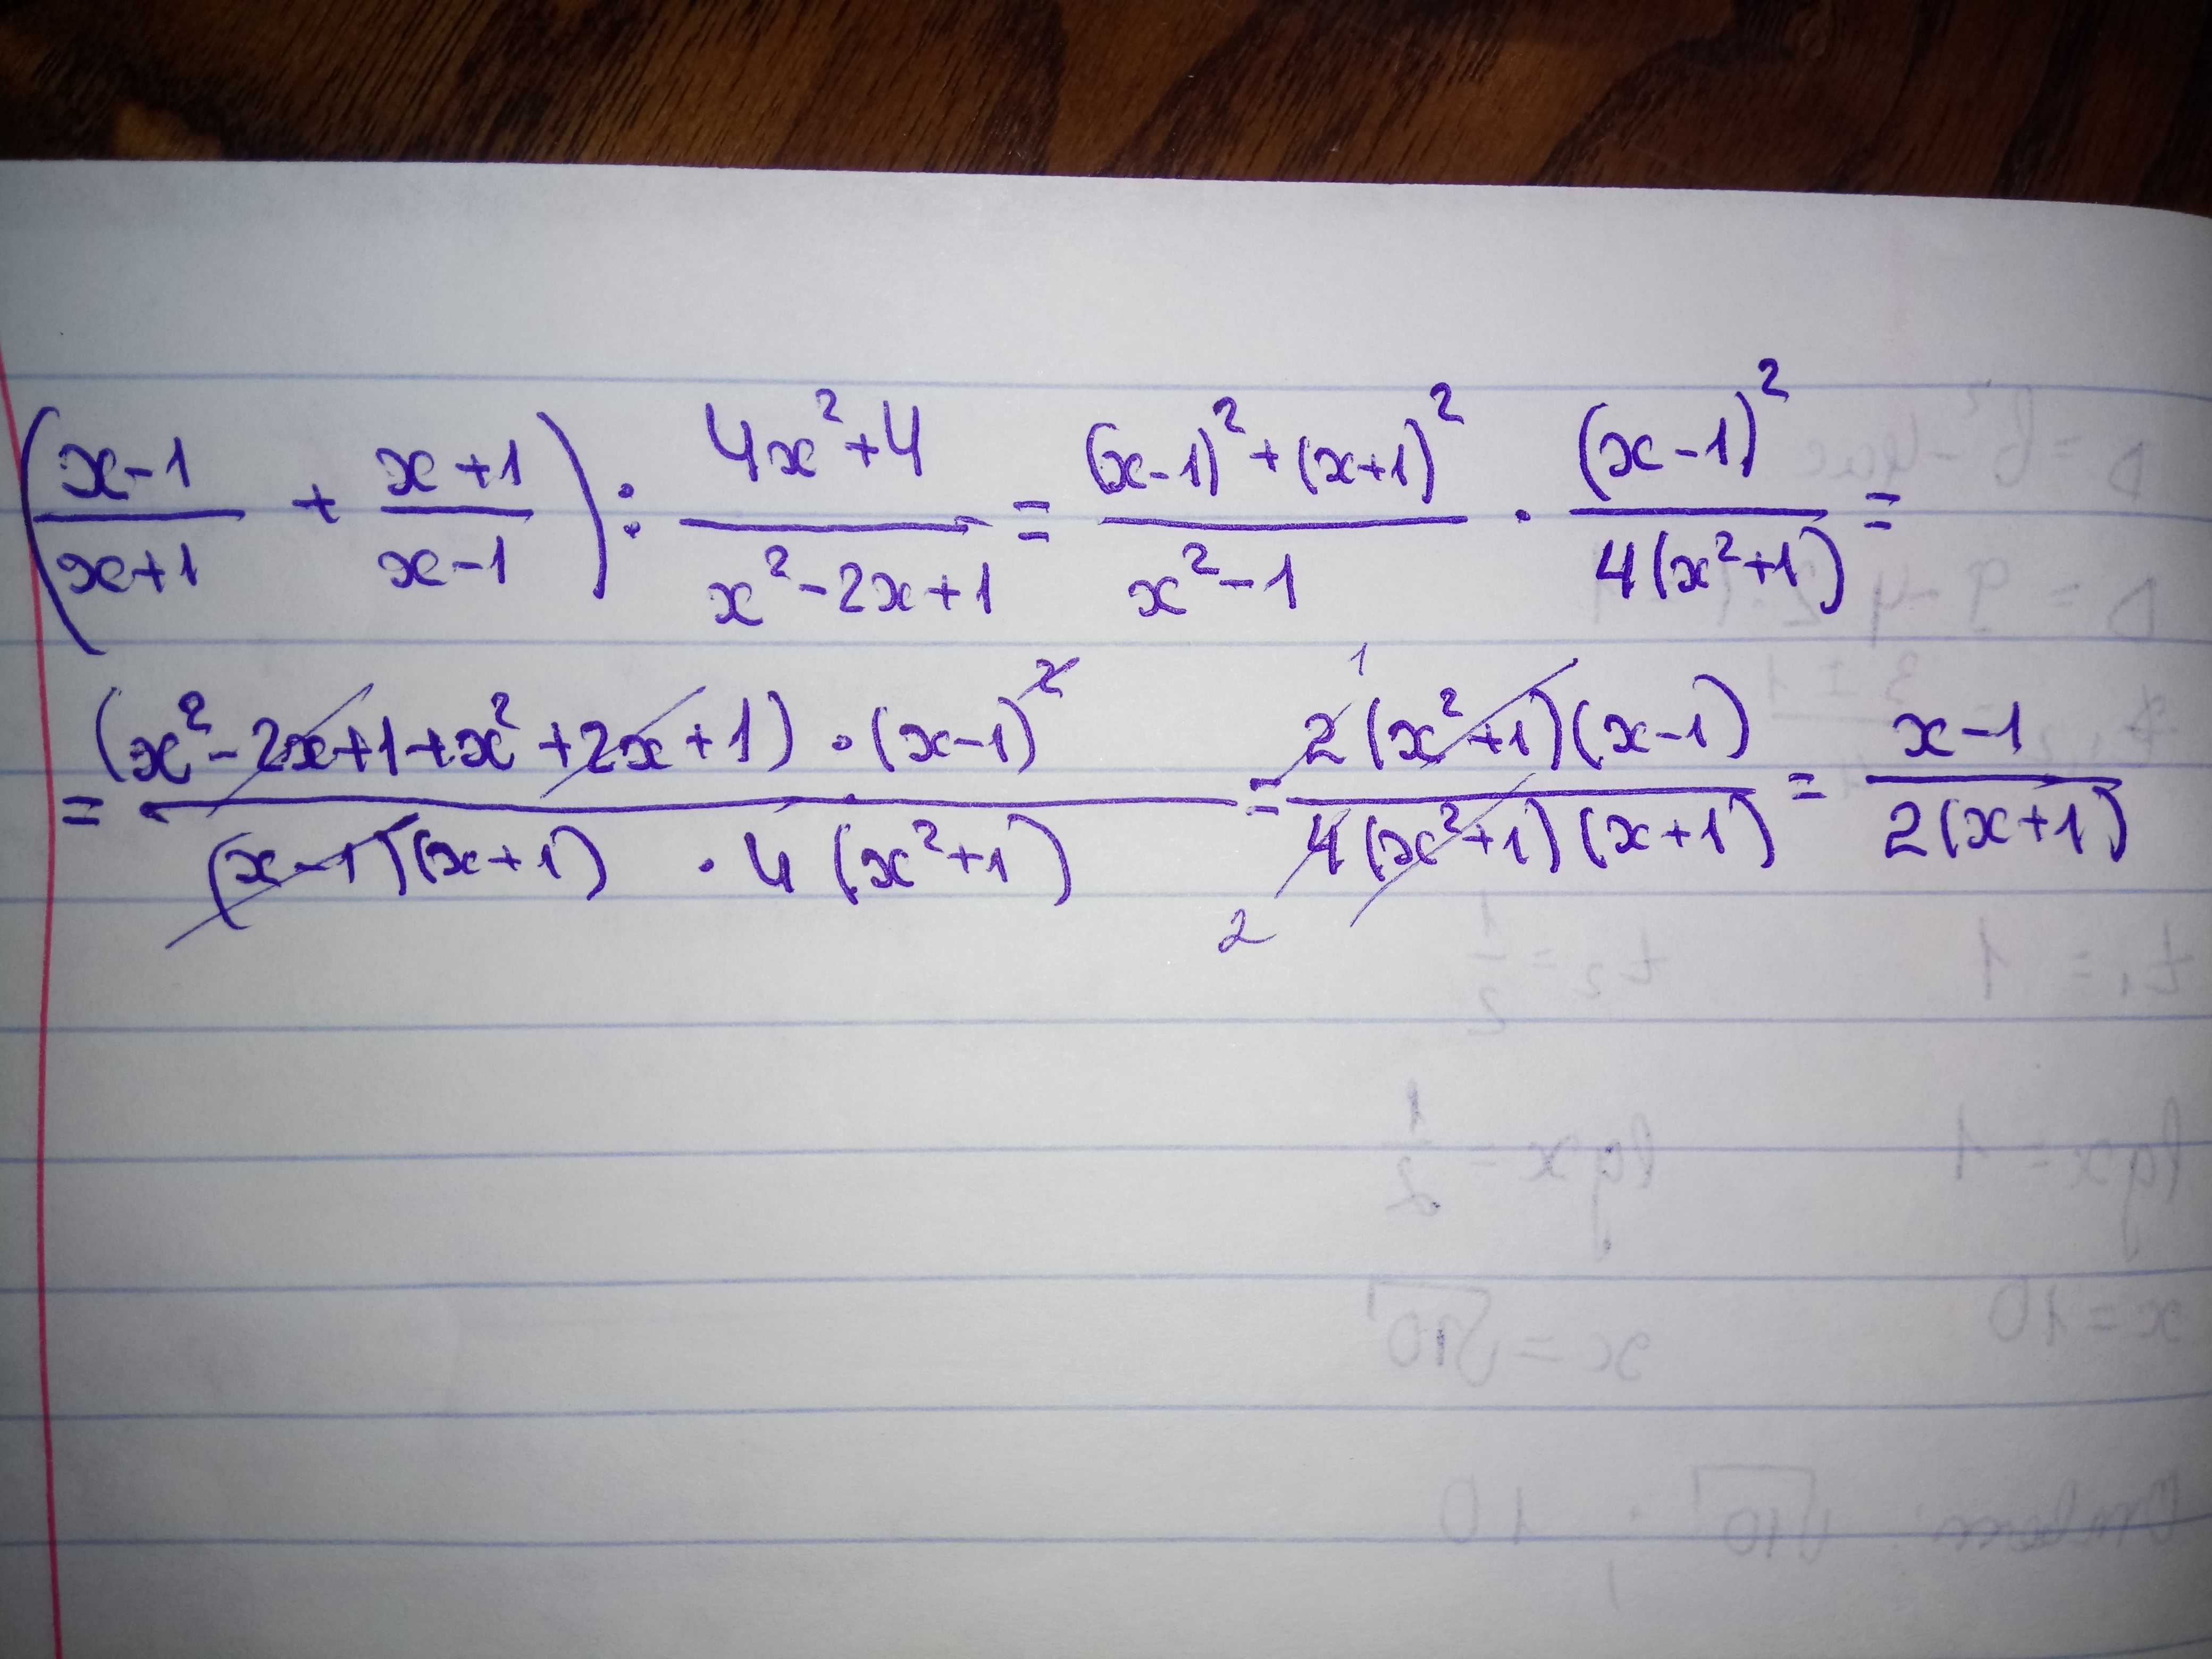 (x-1/x+1 + x+1/x-1) : 4x²+4/x²-2x+1 = (x-1)²+(x+1)²/x²-1 · (x-1)²/4(x²+1) =
= (x²-2x+1+x²+2x+1)·(x-1)²/(x-1)(x+1)·4(x²+1) = 2(x²+1)(x-1)/4(x²+1)(x+1) = x-1/2(x+1)
1
2